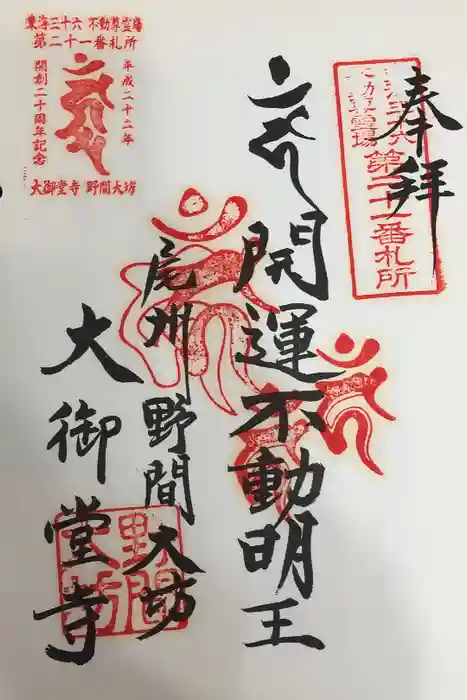 奉拝
東海三十六不動尊霊場
第二十一番札所
開運不動明王
尾州野間大坊
大御堂寺
野間大坊
東海三十六不動尊霊場
第二十一番札所
平成二十二年
開創二十周年記念
大御堂寺 野間大坊